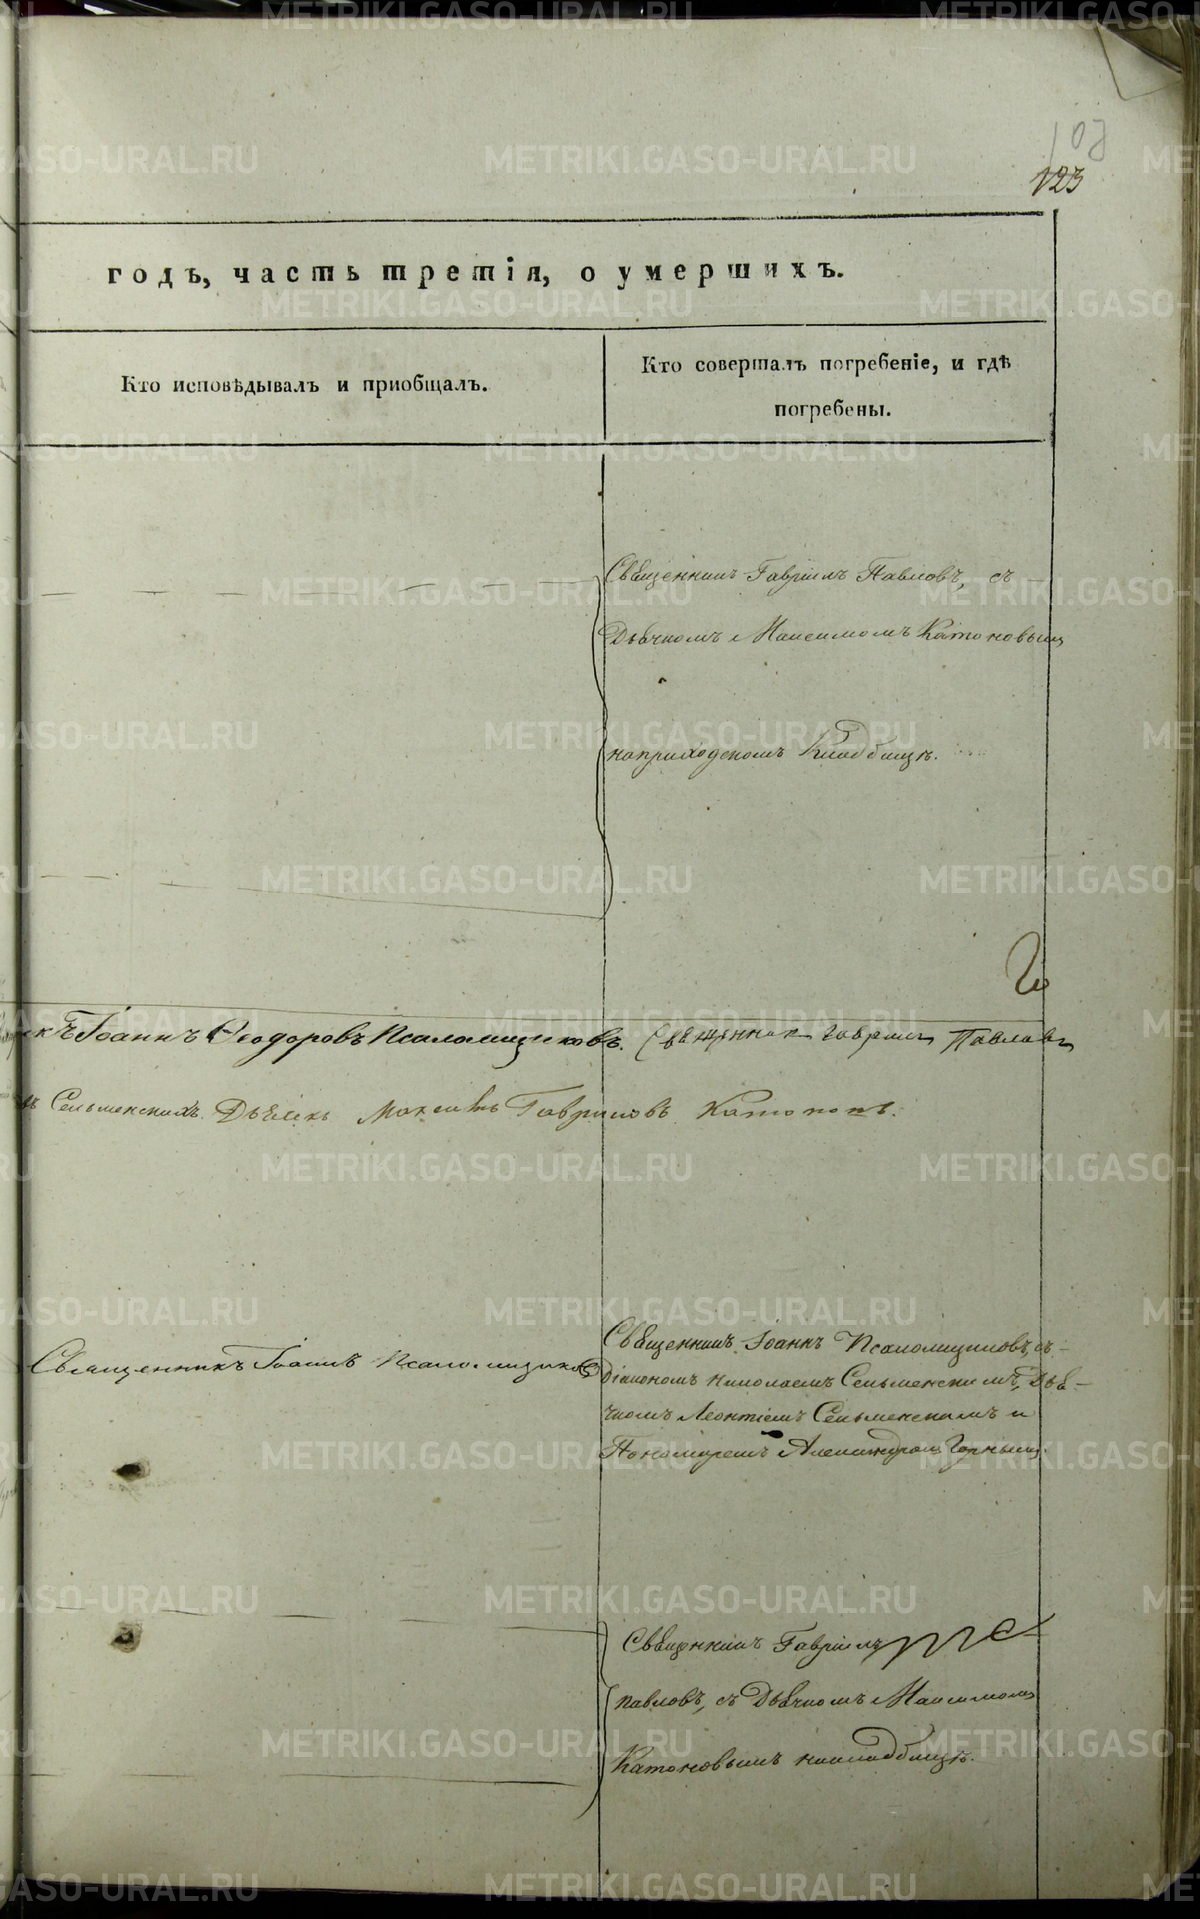 103
123
годъ, часть третія, о умершихъ.
Кто исповѣдывалъ и пріобщалъ.
Кто совершалъ погребеніе, и гдѣ
погребены.
Священникъ Гавріилъ Павловъ, съ
Дьячкомъ Максимомъ Катоновымъ
на приходскомъ Кладбищѣ.
Іоаннъ Ѳеодоровъ Псаломщиковъ. Священникъ Гавріилъ Павловъ
Сельменскихъ. Дьячекъ Максимъ Гавриловъ Катоновъ.
Священникъ Іоаннъ Псаломщиковъ
Священникъ Іоаннъ Псаломщиковъ, съ
Діакономъ Николаемъ Сельменскимъ, Дья-
чкомъ Леонтіемъ Сельменскимъ и
Пономаремъ Александромъ Горнымъ.
Священникъ Гавріилъ
Павловъ, съ Дьячкомъ Максимомъ
Катоновымъ на кладбищѣ.
METRIKI.GASO-URAL.RU